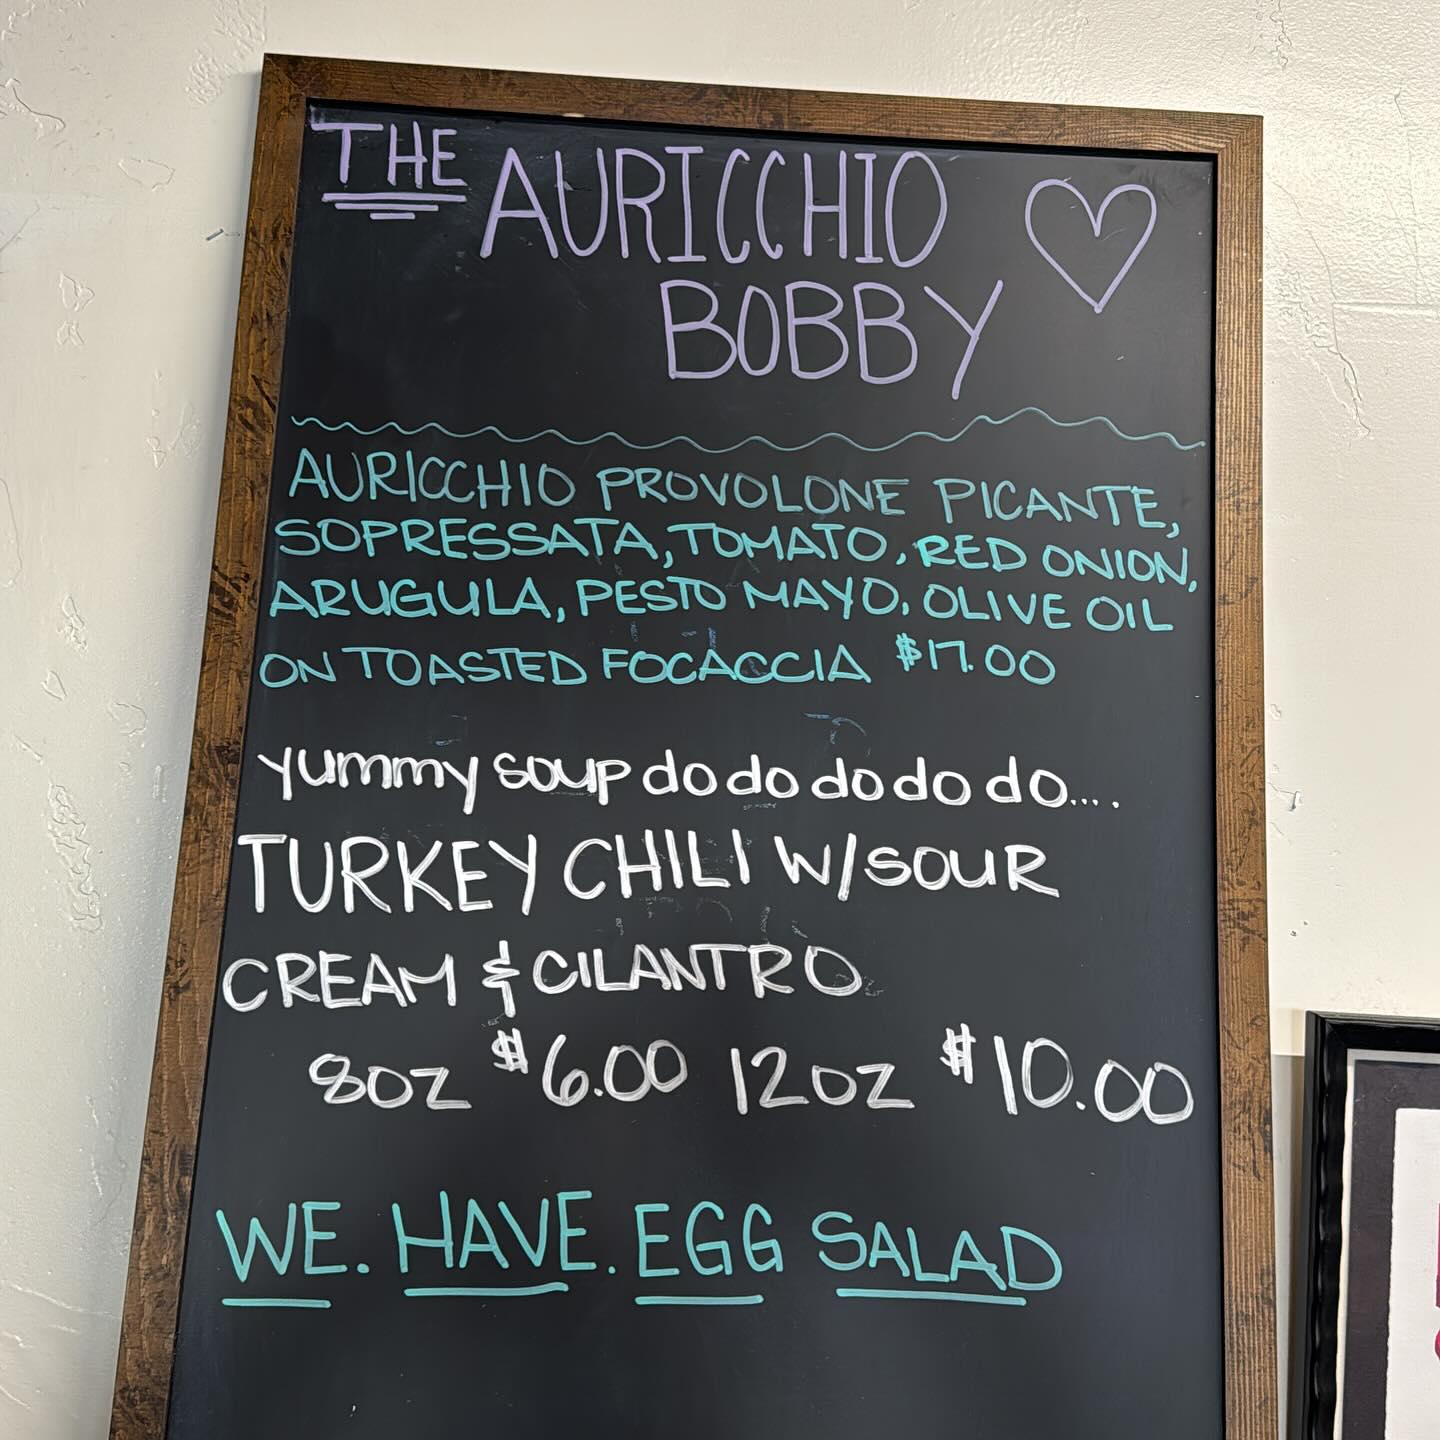 THE AURICCHIO
BOBBY
AURICCHIO PROVOLONE PICANTE,
SOPRESSATA, TOMATO, RED ONION,
ARUGULA, PESTO MAYO, OLIVE OIL
ON TOASTED FOCACCIA $17.00
yummy soup do do do do do do....
TURKEY CHILI W/SOUR
CREAM & CILANTRO
8OZ $6.00 12OZ $10.00
WE. HAVE. EGG SALAD